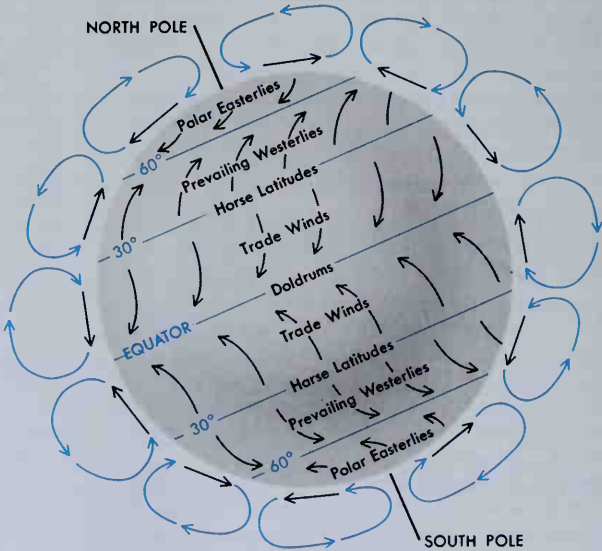 NORTH POLE
Polar Easterlies
60°
Prevailing Westerlies
Horse Latitudes
30°
Trade Winds
Doldrums
EQUATOR
Trade Winds
Harse Latitudes
30°
Prevailing Westerlies
60°
Polar Easterlies
SOUTH POLE